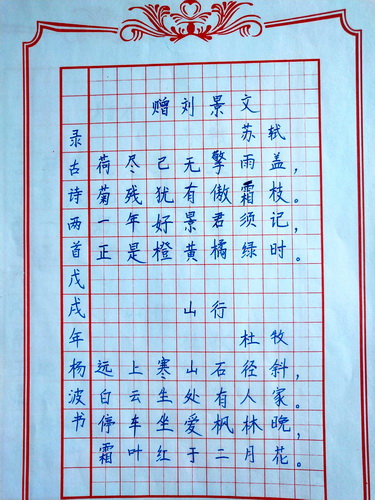 赠刘景文
苏轼
荷尽已无擎雨盖，
菊残犹有傲霜枝。
一年好景君须记，
正是橙黄橘绿时。
山行
杜牧
远上寒山石径斜，
白云坐处有人家。
停车坐爱枫林晚，
霜叶红于二月花。
录古诗两首戊戌年杨波书